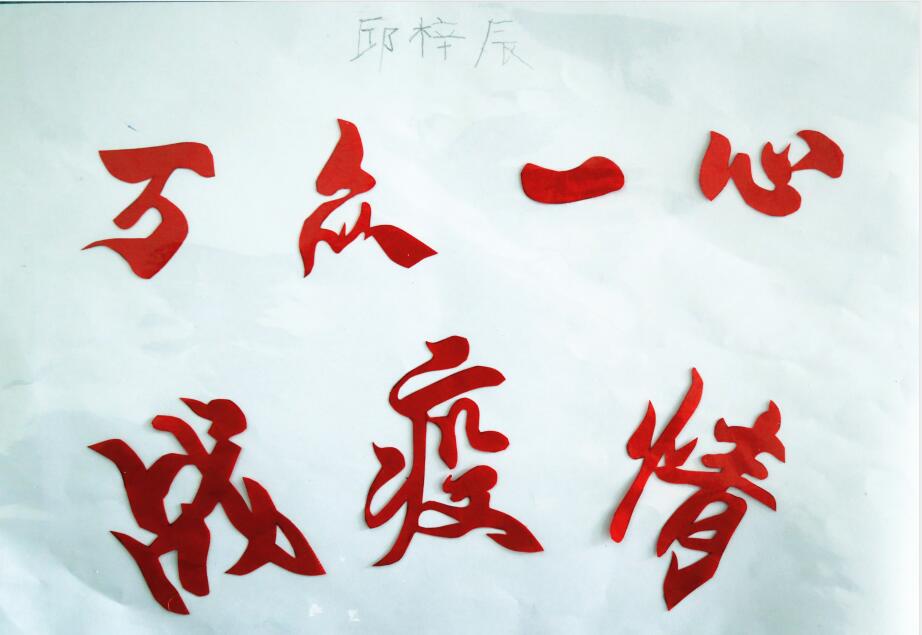 邱梓辰
万众一心
战疫情